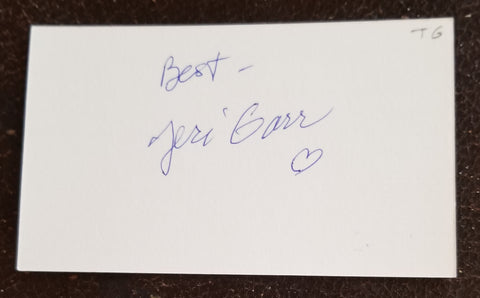 TG
Best -
Teri Garr
♡